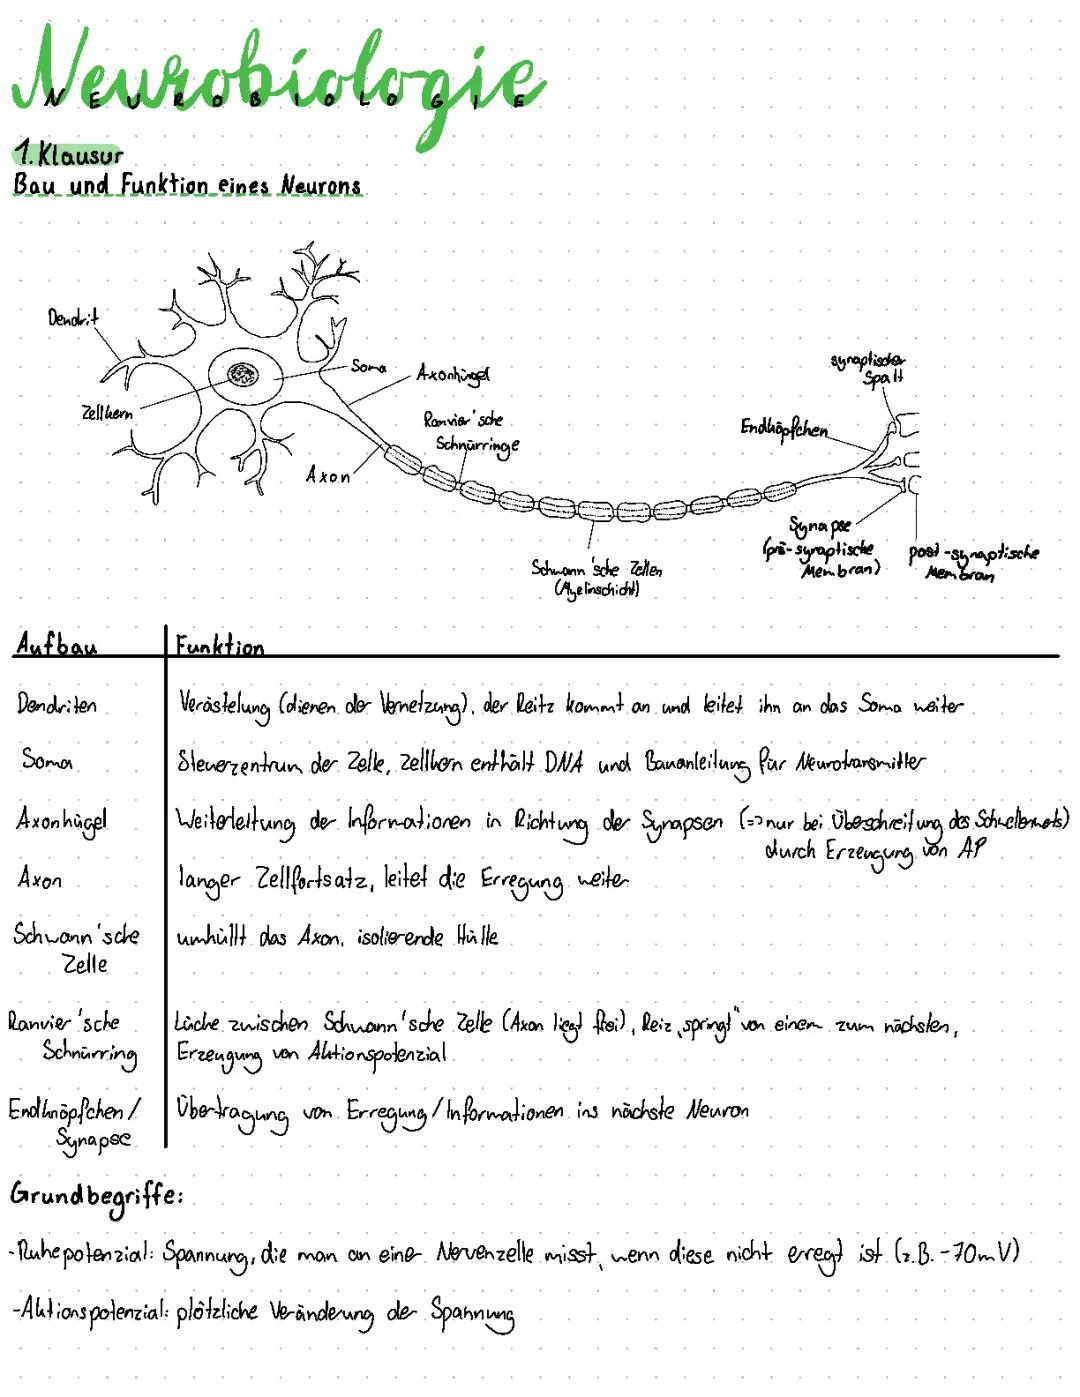 Neurobiologie
NEUROBIOLOGIE
1. Klausur
Bau und Funktion eines Neurons
Dendrit
Zellkern
Soma
Axonhügel
Ranvier'sche
Schnürringe
Axon
Schwann'sche Zellen
(Myelinschicht)
synaptischer
Spalt
Endknöpfchen
Synapse
(prä-synaptische
Membran)
post-synaptische
Membran
Aufbau Funktion
Dendriten Verästelung (dienen der Vernetzung), der Reitz kommt an und leitet ihn an das Soma weiter
Soma Steuerzentrum der Zelle, Zellkern enthält DNA und Bauanleitung für Neurotransmitter
Axonhügel Weiterleitung der Informationen in Richtung der Synapsen (=> nur bei Überschreitung des Schwellenwerts)
durch Erzeugung von AP
Axon langer Zellfortsatz, leitet die Erregung weiter
Schwann'sche umhüllt das Axon, isolierende Hülle
Zelle
Ranvier'sche Lücke zwischen Schwann'sche Zelle (Axon liegt frei), Reiz „springt" von einem zum nächsten,
Schnürring Erzeugung von Aktionspotenzial
Endknöpfchen/ Übertragung von Erregung/Informationen ins nächste Neuron
Synapse
Grundbegriffe:
-Ruhepotenzial: Spannung, die man an einer Nervenzelle misst, wenn diese nicht erregt ist (z.B. -70mV)
-Aktionspotenzial: plötzliche Veränderung der Spannung